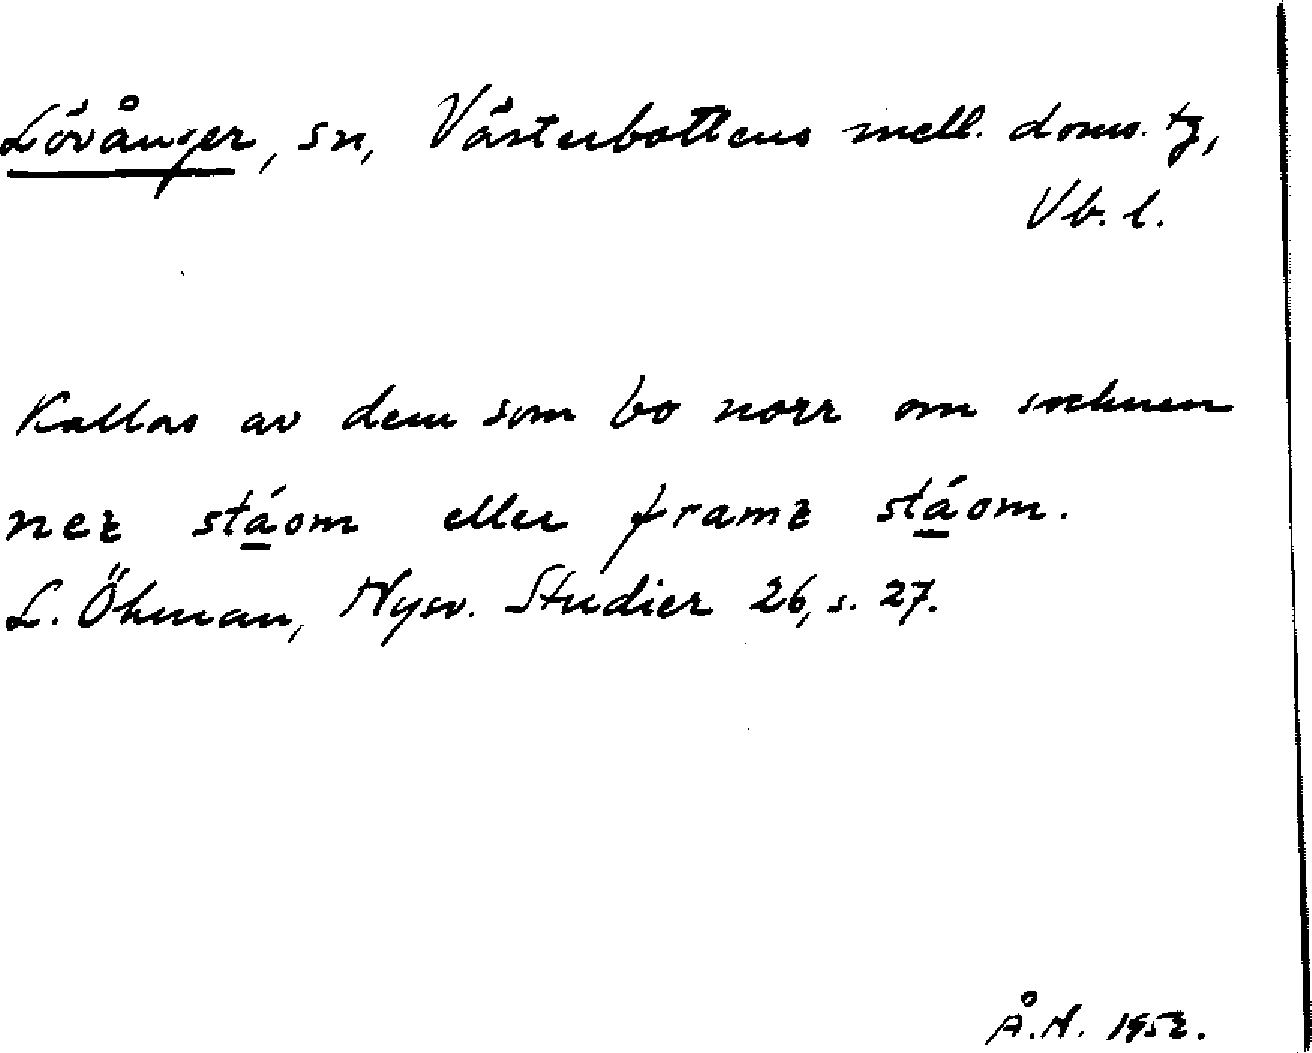 Lövånger, sn, Västerbottens mell. doms. tg,
Vb. l.
Kallas av dem som bo norr om socknen
nez stáom eller framz stáom.
L. Öhman, Nysv. Studier 26, s. 27.
Å.N. 1952.